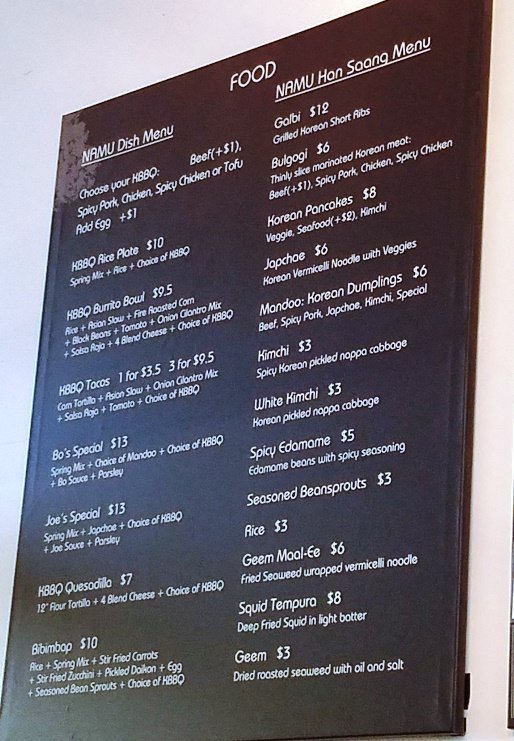 FOOD
NAMU Dish Menu
Choose your KBBQ: Beef(+$1),
Spicy Pork, Chicken, Spicy Chicken or Tofu
Add Egg +$1
KBBQ Rice Plate $10
Spring Mix + Rice + Choice of KBBQ
KBBQ Burrito Bowl $9.5
Rice + Asian Slaw + Fire Roasted Corn
+ Black Beans + Tomato + Onion Cilantro Mix
+ Salsa Roja + 4 Blend Cheese + Choice of KBBQ
KBBQ Tacos 1 for $3.5 3 for $9.5
Corn Tortilla + Asian Slaw + Onion Cilantro Mix
+ Salsa Roja + Tomato + Choice of KBBQ
Bo's Special $13
Spring Mix + Choice of Mandoo + Choice of KBBQ
+ Bo Sauce + Parsley
Joe's Special $13
Spring Mix + Japchae + Choice of KBBQ
+ Joe Sauce + Parsley
KBBQ Quesadilla $7
12" Flour Tortilla + 4 Blend Cheese + Choice of KBBQ
Bibimbap $10
Rice + Spring Mix + Stir Fried Carrots
+ Stir Fried Zucchini + Pickled Daikon + Egg
+ Seasoned Bean Sprouts + Choice of KBBQ
NAMU Han Saang Menu
Galbi $12
Grilled Korean Short Ribs
Bulgogi $6
Thinly slice marinated Korean meat:
Beef(+$1), Spicy Pork, Chicken, Spicy Chicken
Korean Pancakes $8
Veggie, Seafood(+$2), Kimchi
Japchae $6
Korean Vermicelli Noodle with Veggies
Mandoo: Korean Dumplings $6
Beef, Spicy Pork, Japchae, Kimchi, Special
Kimchi $3
Spicy Korean pickled nappa cabbage
White Kimchi $3
Korean pickled nappa cabbage
Spicy Edamame $5
Edamame beans with spicy seasoning
Seasoned Beansprouts $3
Rice $3
Geem Maal-Ee $6
Fried Seaweed wrapped vermicelli noodle
Squid Tempura $8
Deep Fried Squid in light batter
Geem $3
Dried roasted seaweed with oil and salt